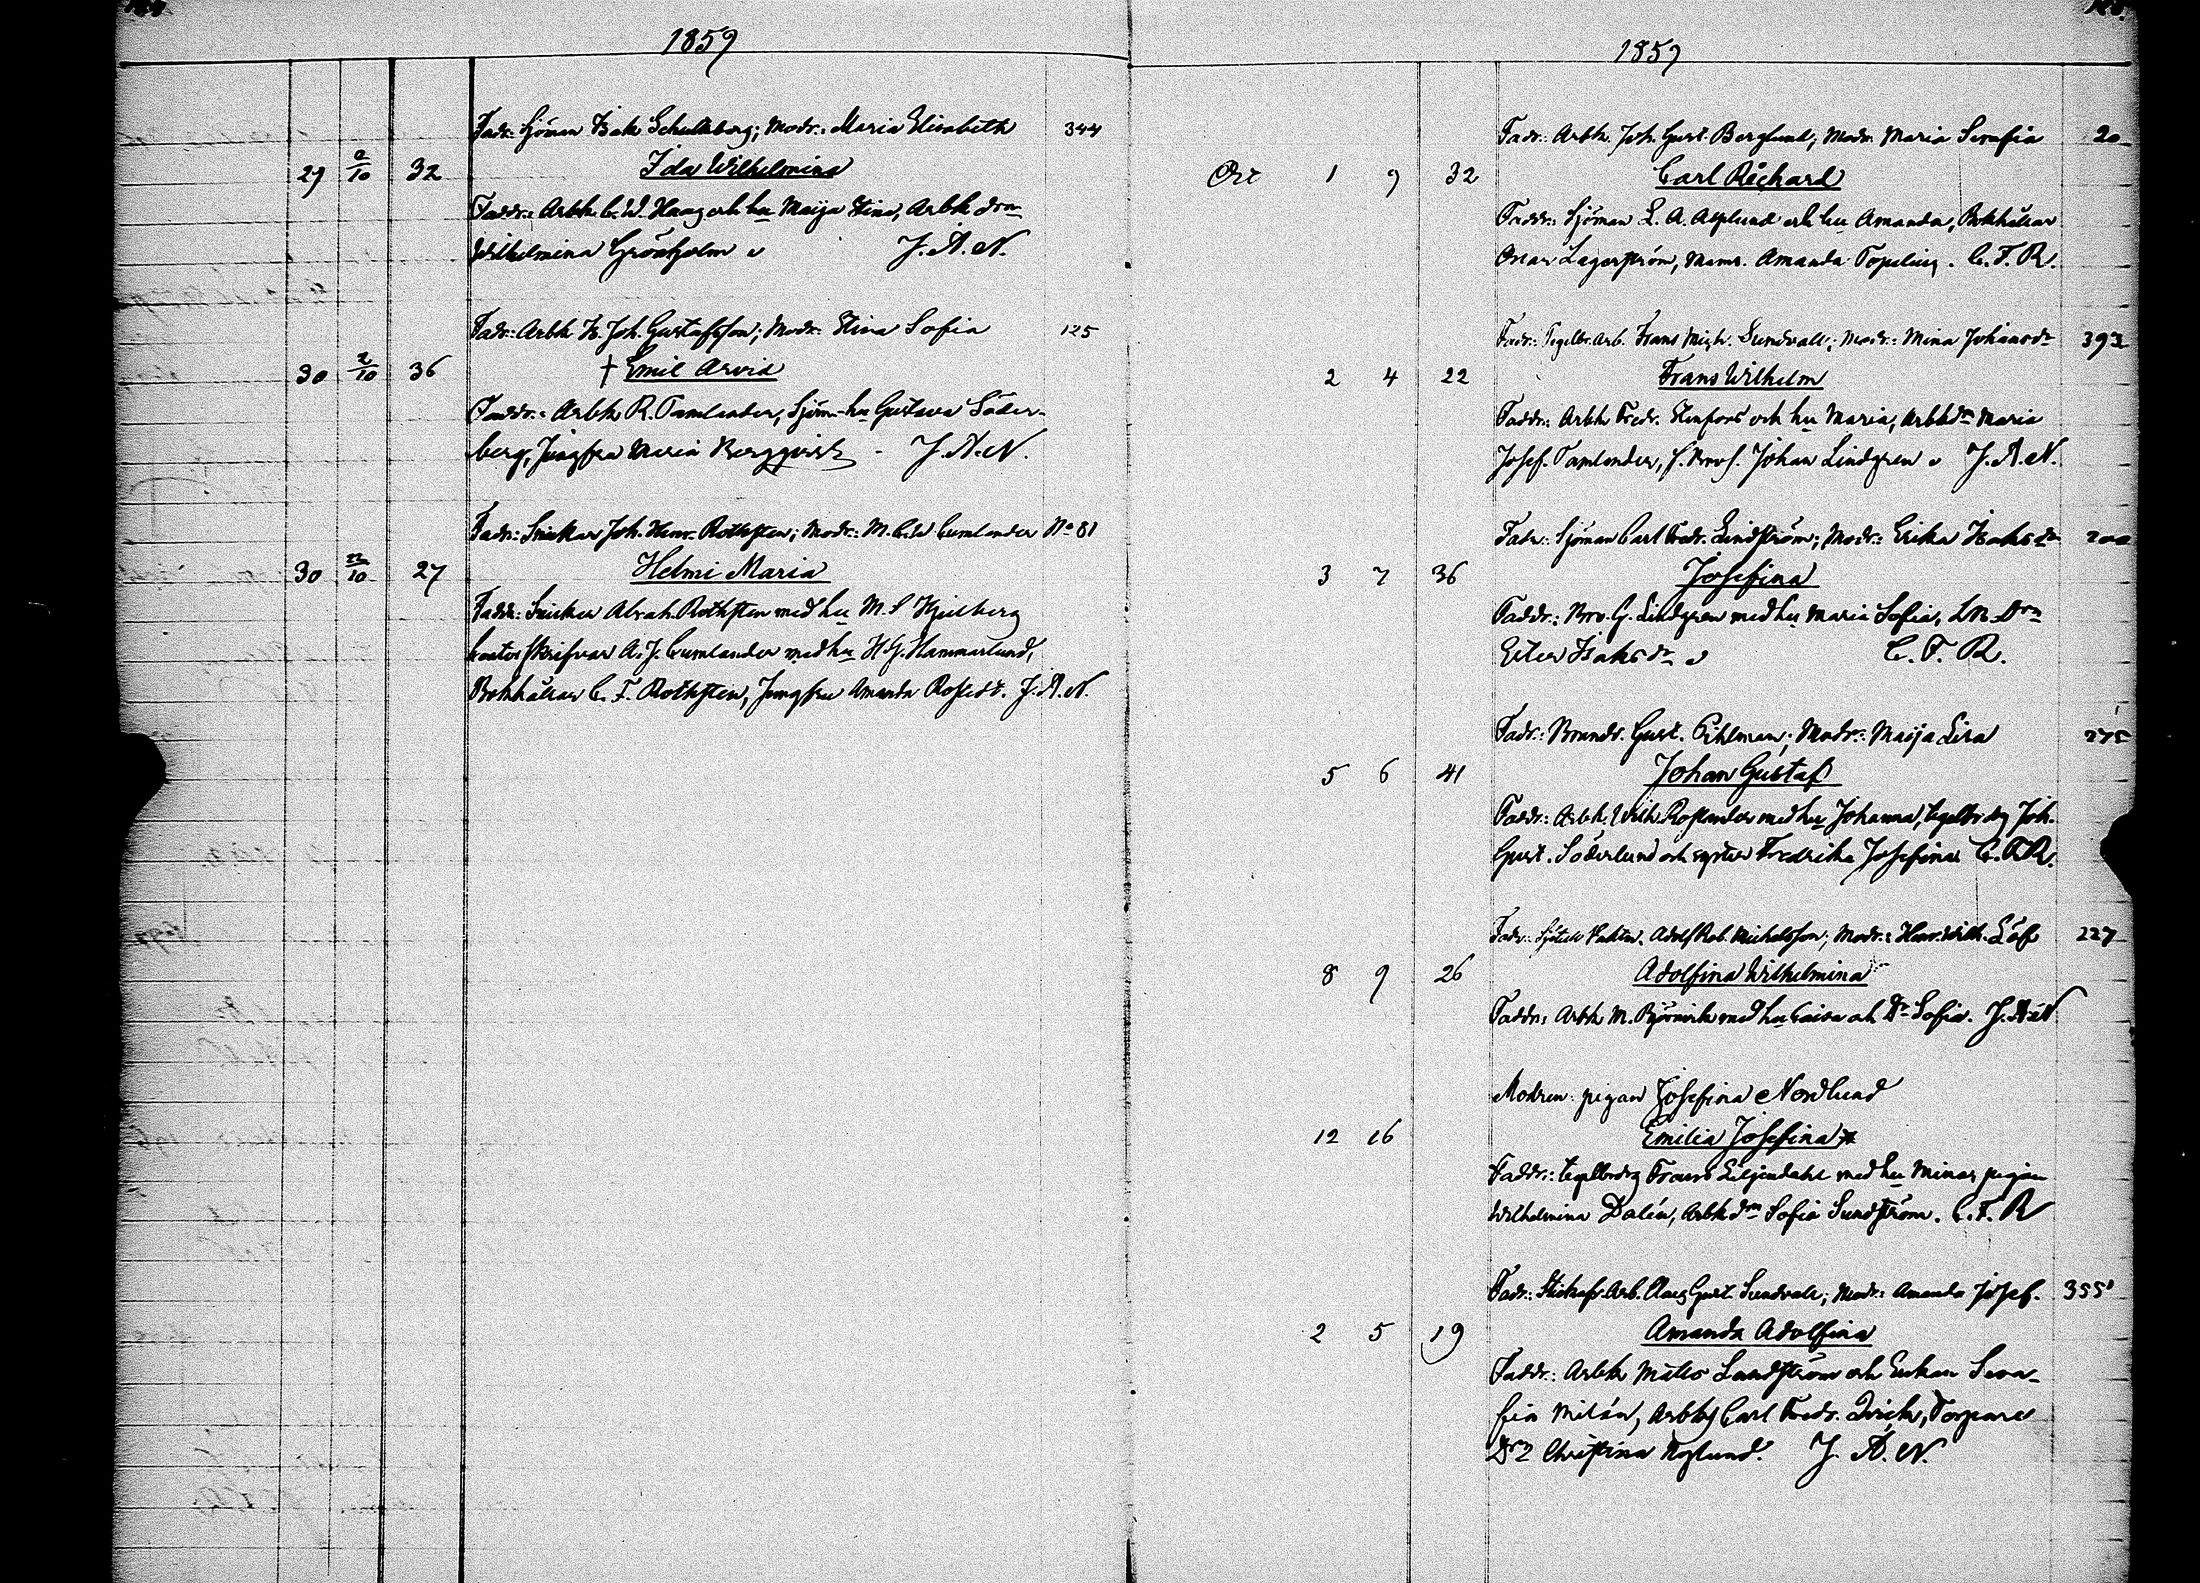 1859
Fadr: Sjöman Isak Schultsberg; Modr: Maria Elisabeth 344
29 2/10 32 Ida Wilhelmina
Faddr: Arbk. C. W. Haag och hu Maija Stina, Arbk drn
Wilhelmina Grönholm J. A. N.
Fadr: Arbk Is. Joh. Gustafsson; Modr: Stina Sofia 125
30 2/10 36 † Emil Arvid
Faddr: Arbk R. Tamlander, Sjöm-hu Gustava Söder-
berg, Jungfru Maria Bergqvist J. A. N.
Fadr: Snickar Joh. Henr. Rothsten; Modr: M. C. W Cumlander No 81
30 22/10 27 Helmi Maria
Faddr: Snickar Abrah. Rothsten med hu M. S Kjelberg
skrifvar A. J. Cumlander med hu H G. Hammarlund,
Bokhållar C. F. Rothsten, Jungfru Amanda J. A. N.
1859
Fadr: Arbk. Joh. Gust. Berglund; Modr: Maria Serafia 20
Oct 1 9 32 Carl Richard
Faddr: Sjöman L. A. Asplund och hu Amanda, Bokhållar
Oscar Lagerström, Mams. Amanda Topelius. C. F. R.
Fadr: Tegelbr. Arb. Frans Mich. Sundvall; Modr: Mina Johansdr 393
2 4 22 Frans Wilhelm
Faddr: Arbk Fredr. Stenfors och hu Maria, Arbk drn Maria
Josef. Tamlander, Johan Lindgren J. A. N.
Fadr: Sjöman Carl Fredr. Lindström; Modr: Erika Isaksdr 200
3 7 36 Josefina
Faddr: G. Lindgren med hu Maria Sofia, Drn
Isaksdr C. F. R.
Fadr: Gust. Pihlman; Modr: Maija Lisa 275
5 6 41 Johan Gustaf
Faddr: Arbk. Wilh. Roslander med hu Johanna, Joh.
Gust. Söderlund och syster Fredrika Josefina C. F. R.
Fadr: Adolf Rob. Michelsson; Modr: Hen. Wilh. Löf 227
8 9 26 Adolfina Wilhelmina
Faddr: Arbk M. Björnvik med hu Caisa och Dr Sofia. J. A. N
Modren: pigan Josefina Nordlund
12 16 Emilia Josefina
Faddr: Frans Liljendahl med hu Mina, pigan
Wilhelmina Dalén, Arbk drn Sofia Sundström. C. F. R
Fadr: Arb. Claes Gust. Sundvall; Modr: Amanda Josef. 355
2 5 19 Amanda Adolfina
Faddr: Arbk Matts Lundström och Enkan Sera-
fia Milén, Carl Fredr. Torpare
Drn Christina Höglund. J. A. N.